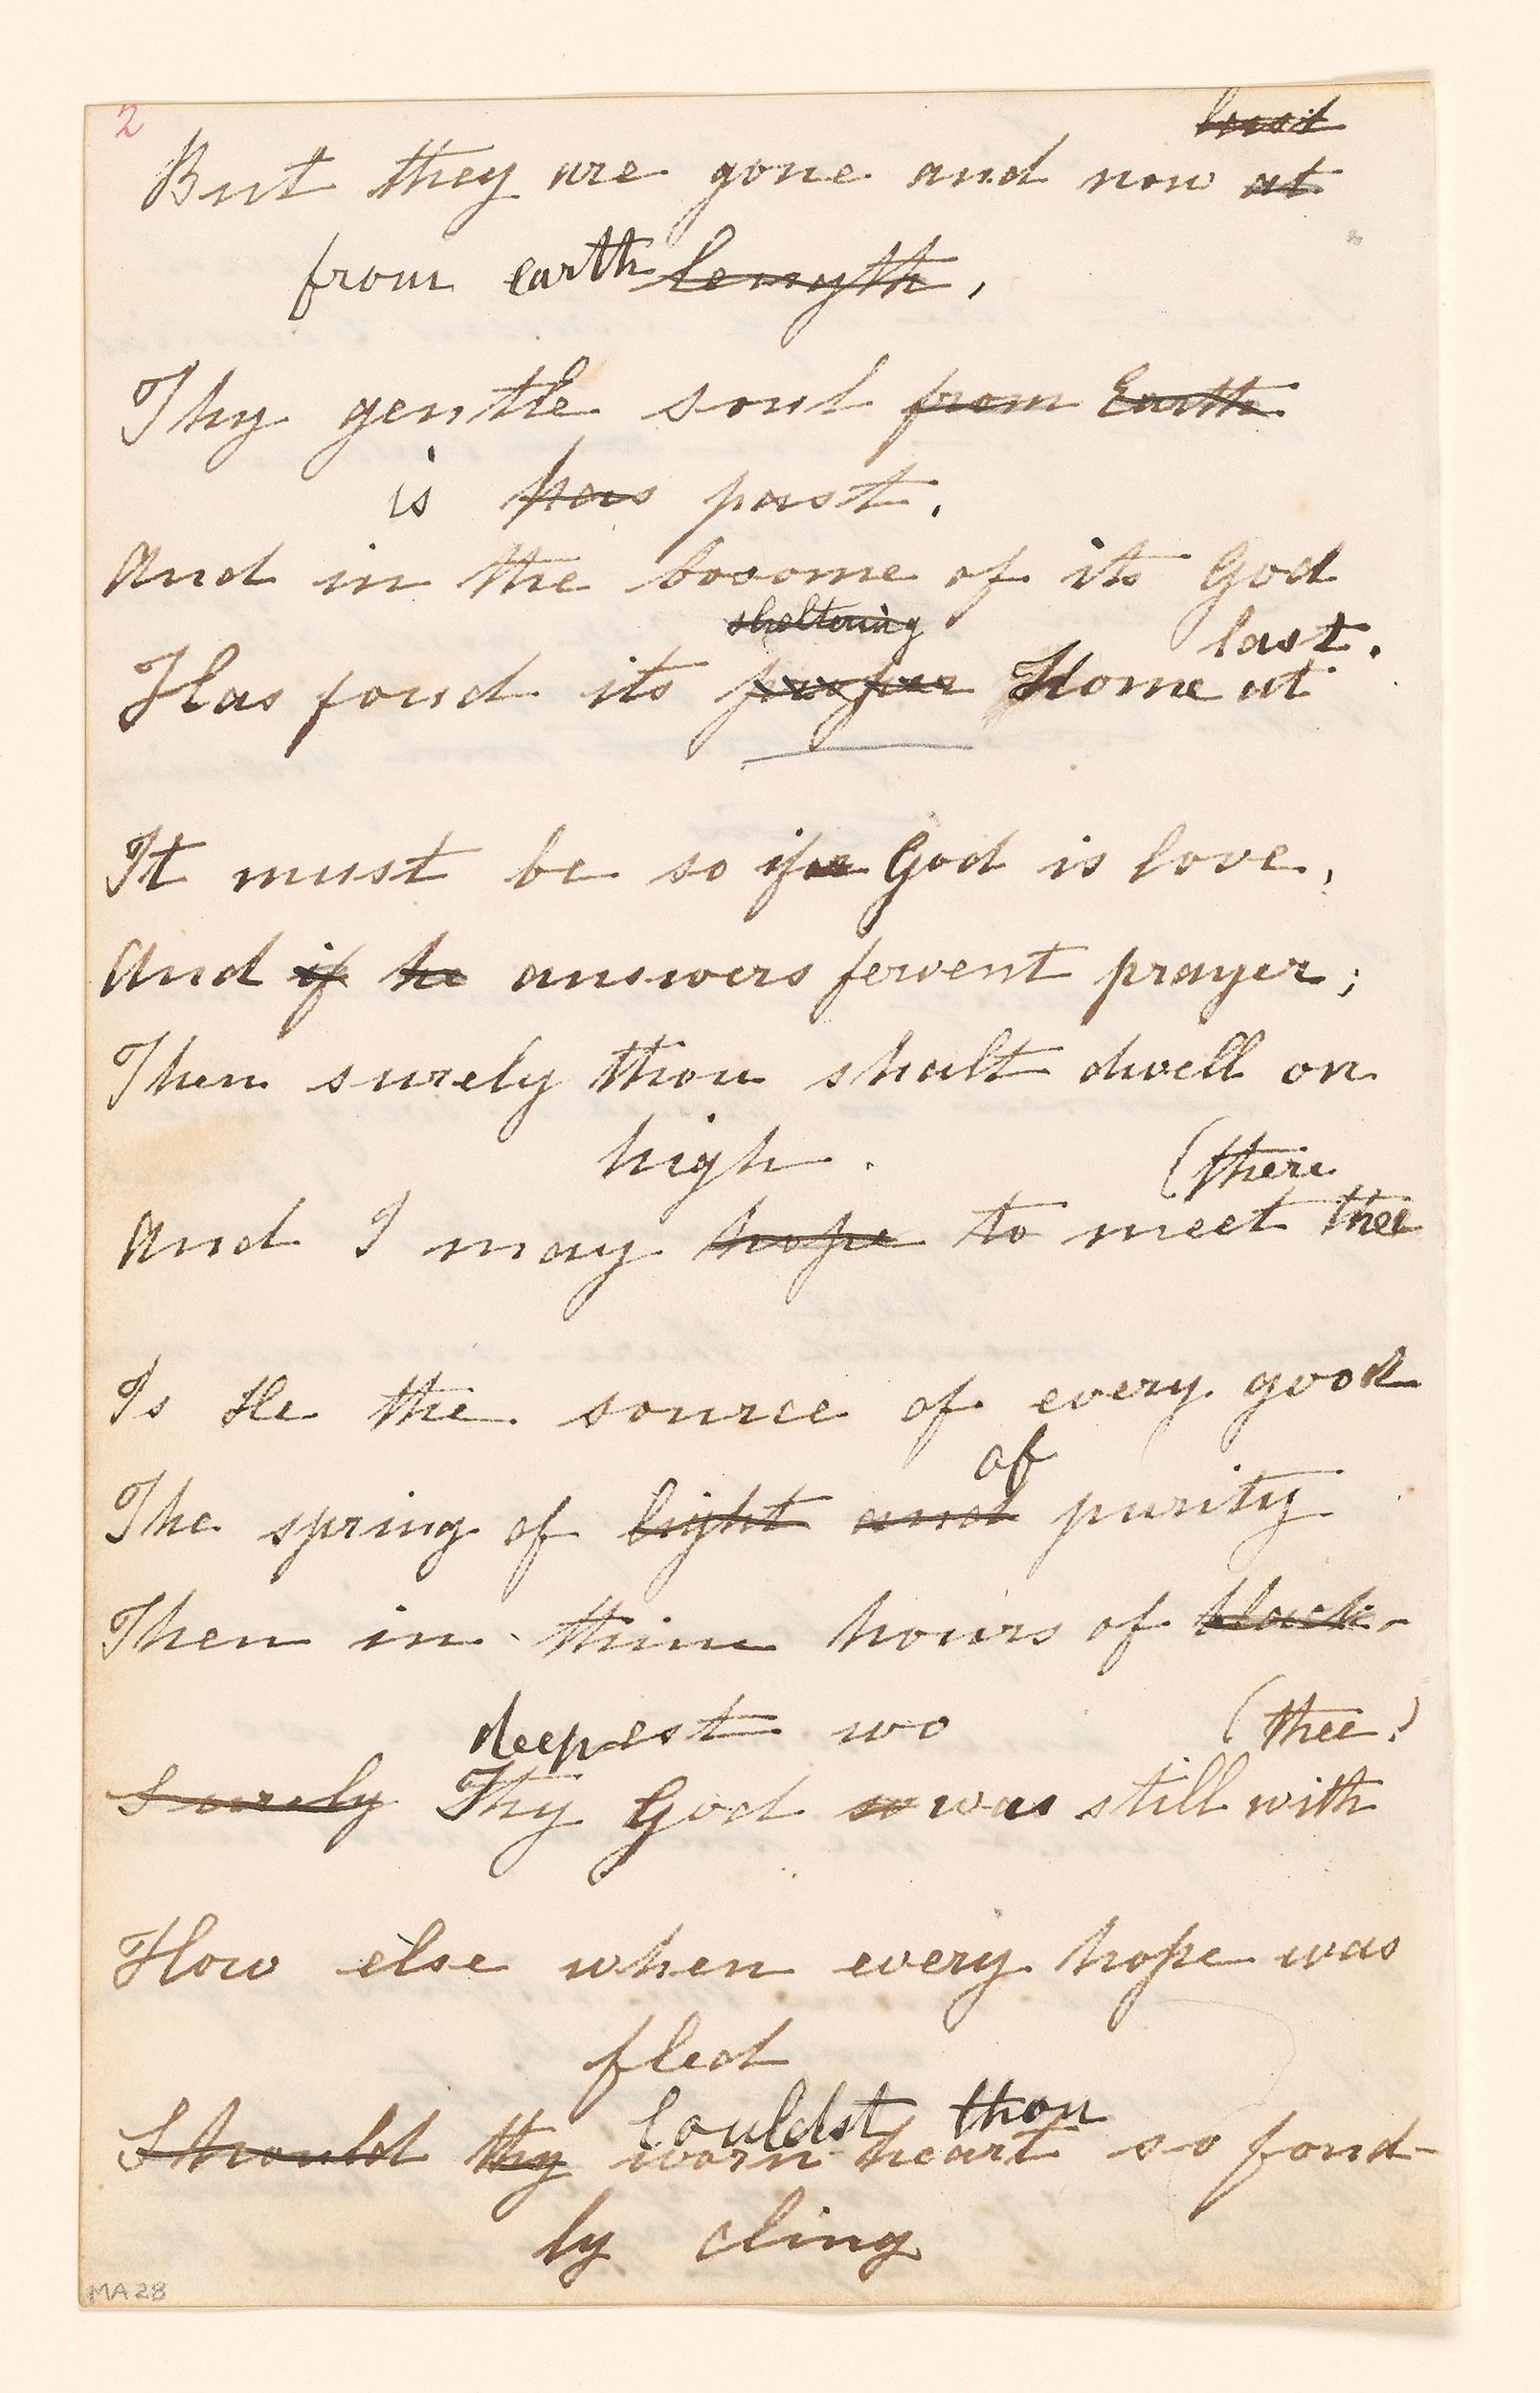 2
But they are gone and now at
from earth length,
Thy gentle soul from Earth
is has past.
And in the bosome of its God
sheltering
last.
Has fond its proper Home at
It must be so if God is love,
And if he answers fervent prayer;
Then surely thou shalt dwell on
high.
(there
And I may hope to meet thee
Is He the source of every good
of
The spring of light and purity
Then in thine hours of black-
deepest wo
(thee?
Surely Thy God so was still with
How else when every hope was
fled
Couldst thou
Should thy worn heart so fond-
ly cling
MA 28